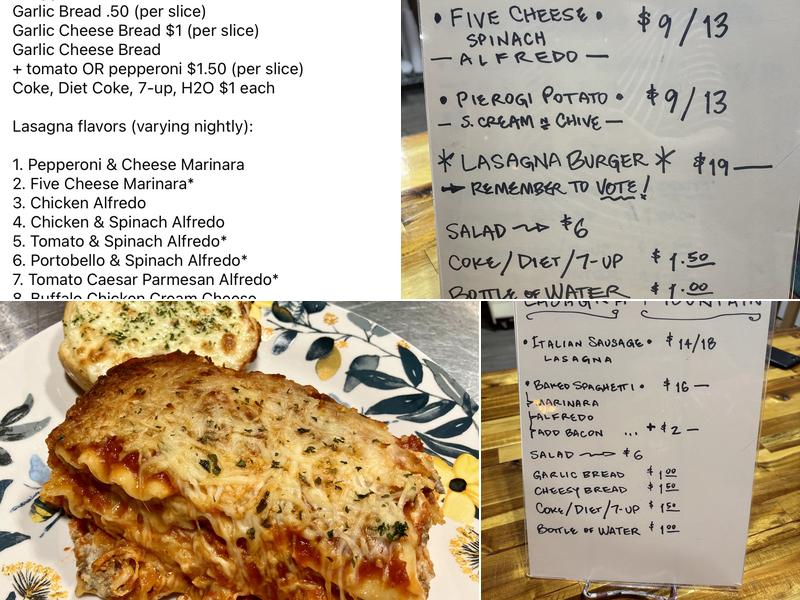 Garlic Bread .50 (per slice)
Garlic Cheese Bread $1 (per slice)
Garlic Cheese Bread
+ tomato OR pepperoni $1.50 (per slice)
Coke, Diet Coke, 7-up, H2O $1 each
Lasagna flavors (varying nightly):
1. Pepperoni & Cheese Marinara
2. Five Cheese Marinara*
3. Chicken Alfredo
4. Chicken & Spinach Alfredo
5. Tomato & Spinach Alfredo*
6. Portobello & Spinach Alfredo*
7. Tomato Caesar Parmesan Alfredo*
8. Buffalo Chicken Cream Cheese
• FIVE CHEESE • $9/13
SPINACH
— ALFREDO —
• PIEROGI POTATO • $9/13
— S. CREAM N CHIVE —
* LASAGNA BURGER * $19 —
→ REMEMBER TO VOTE!
SALAD → $6
COKE/DIET/7-UP $1.50
BOTTLE OF WATER $1.00
LASAGNA MOUNTAIN
• ITALIAN SAUSAGE • $14/18
LASAGNA
• BAKED SPAGHETTI • $16 —
MARINARA
ALFREDO
ADD BACON ... + $2 —
SALAD → $6
GARLIC BREAD $1.00
CHEESY BREAD $1.50
COKE/DIET/7-UP $1.50
BOTTLE OF WATER $1.00